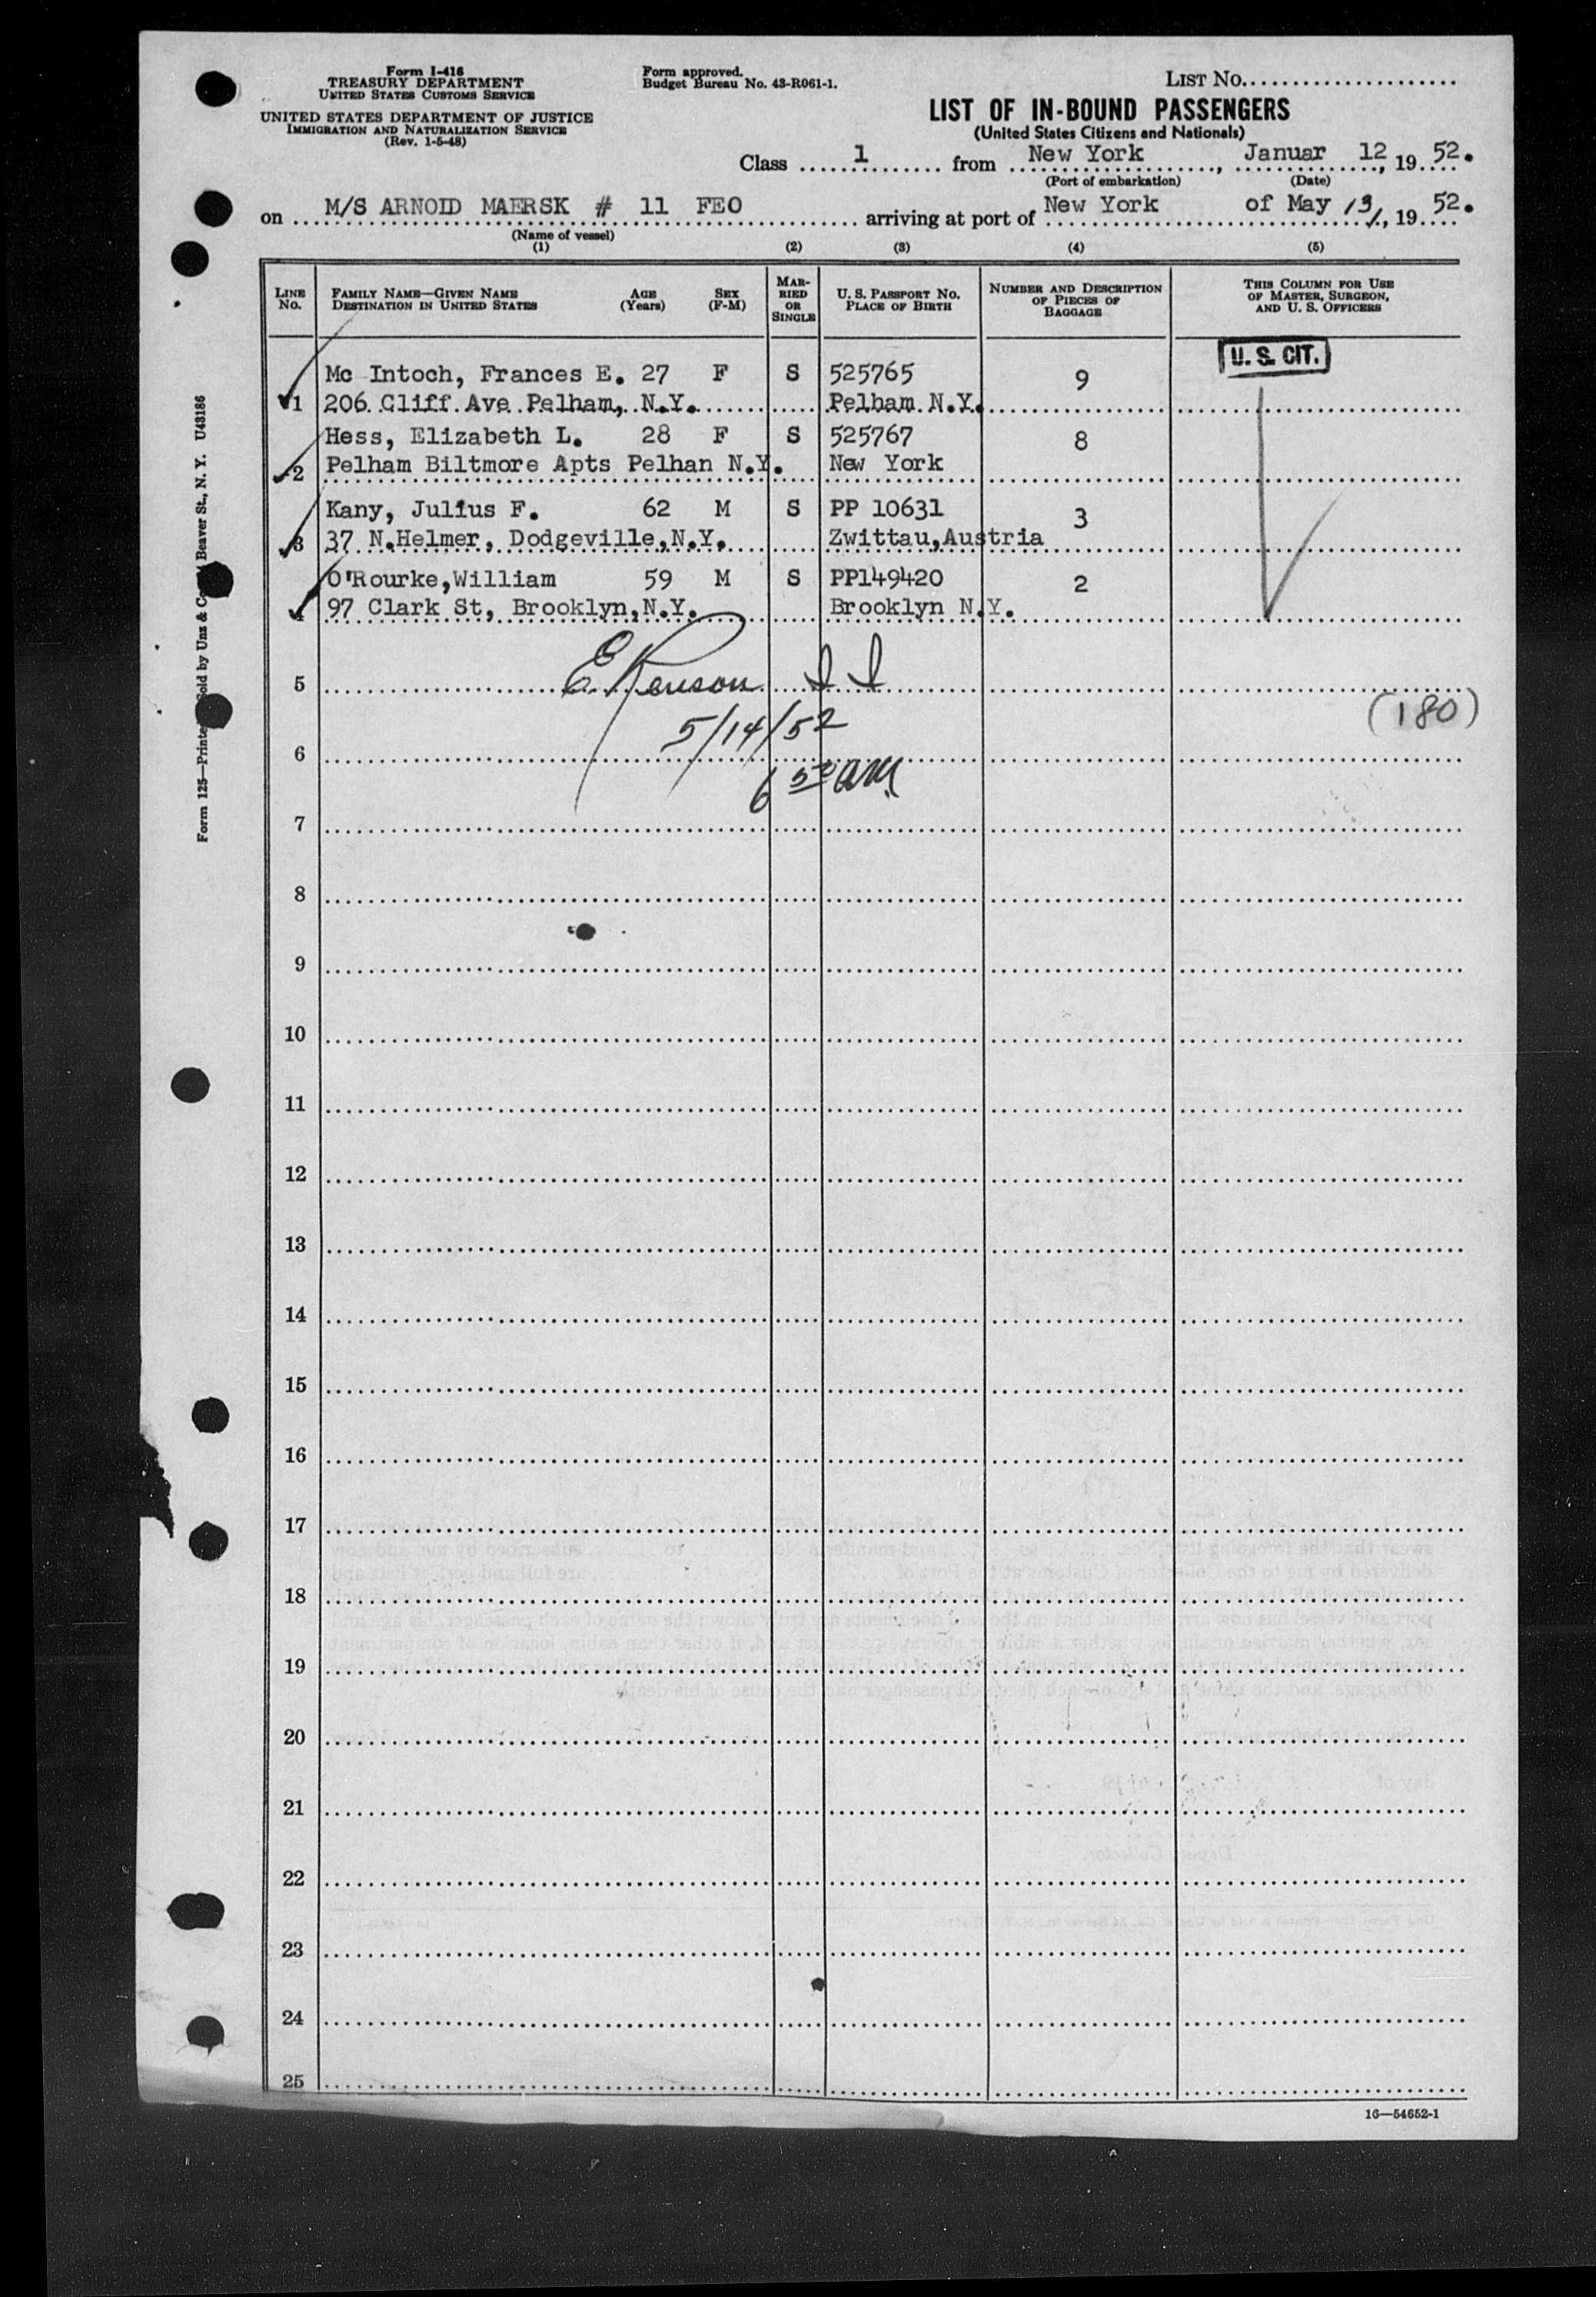 Form I-416
TREASURY DEPARTMENT
UNITED STATES CUSTOMS SERVICE
UNITED STATES DEPARTMENT OF JUSTICE
IMMIGRATION AND NATURALIZATION SERVICE
(Rev. 1-5-48)
Form approved.
Budget Bureau No. 43-R061-1.
LIST NO.
LIST OF IN-BOUND PASSENGERS
(United States Citizens and Nationals)
Class 1 from New York, Januar 12, 19 52.
(Port of embarkation) (Date)
on M/S ARNOLD MAERSK # 11 FEO arriving at port of New York of May 13, 19 52.
(Name of vessel)
(1) (2) (3) (4) (5)
LINE NO. FAMILY NAME—GIVEN NAME DESTINATION IN UNITED STATES AGE (Years) SEX (F-M) MARRIED OR SINGLE U. S. PASSPORT NO. PLACE OF BIRTH NUMBER AND DESCRIPTION OF PIECES OF BAGGAGE THIS COLUMN FOR USE OF MASTER, SURGEON, AND U. S. OFFICERS
U. S. CIT.
Mc Intoch, Frances E. 27 F S 525765 9
1 206 Cliff Ave Pelham, N.Y. Pelham N.Y.
Hess, Elizabeth L. 28 F S 525767 8
2 Pelham Biltmore Apts Pelhan N.Y. New York
Kany, Julius F. 62 M S PP 10631 3
3 37 N.Helmer, Dodgeville,N.Y. Zwittau,Austria
O'Rourke,William 59 M S PP149420 2
4 97 Clark St, Brooklyn,N.Y. Brooklyn N.Y.
5 E. Renson I I
(180)
5/14/52
6
6 50 AM
7
8
9
10
11
12
13
14
15
16
17
18
19
20
21
22
23
24
25
16—54652-1
Beaver St., N. Y. U43186